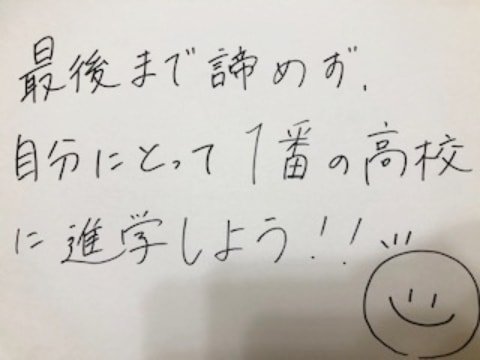 最後まで諦めず、
自分にとって1番の高校
に進学しよう!!